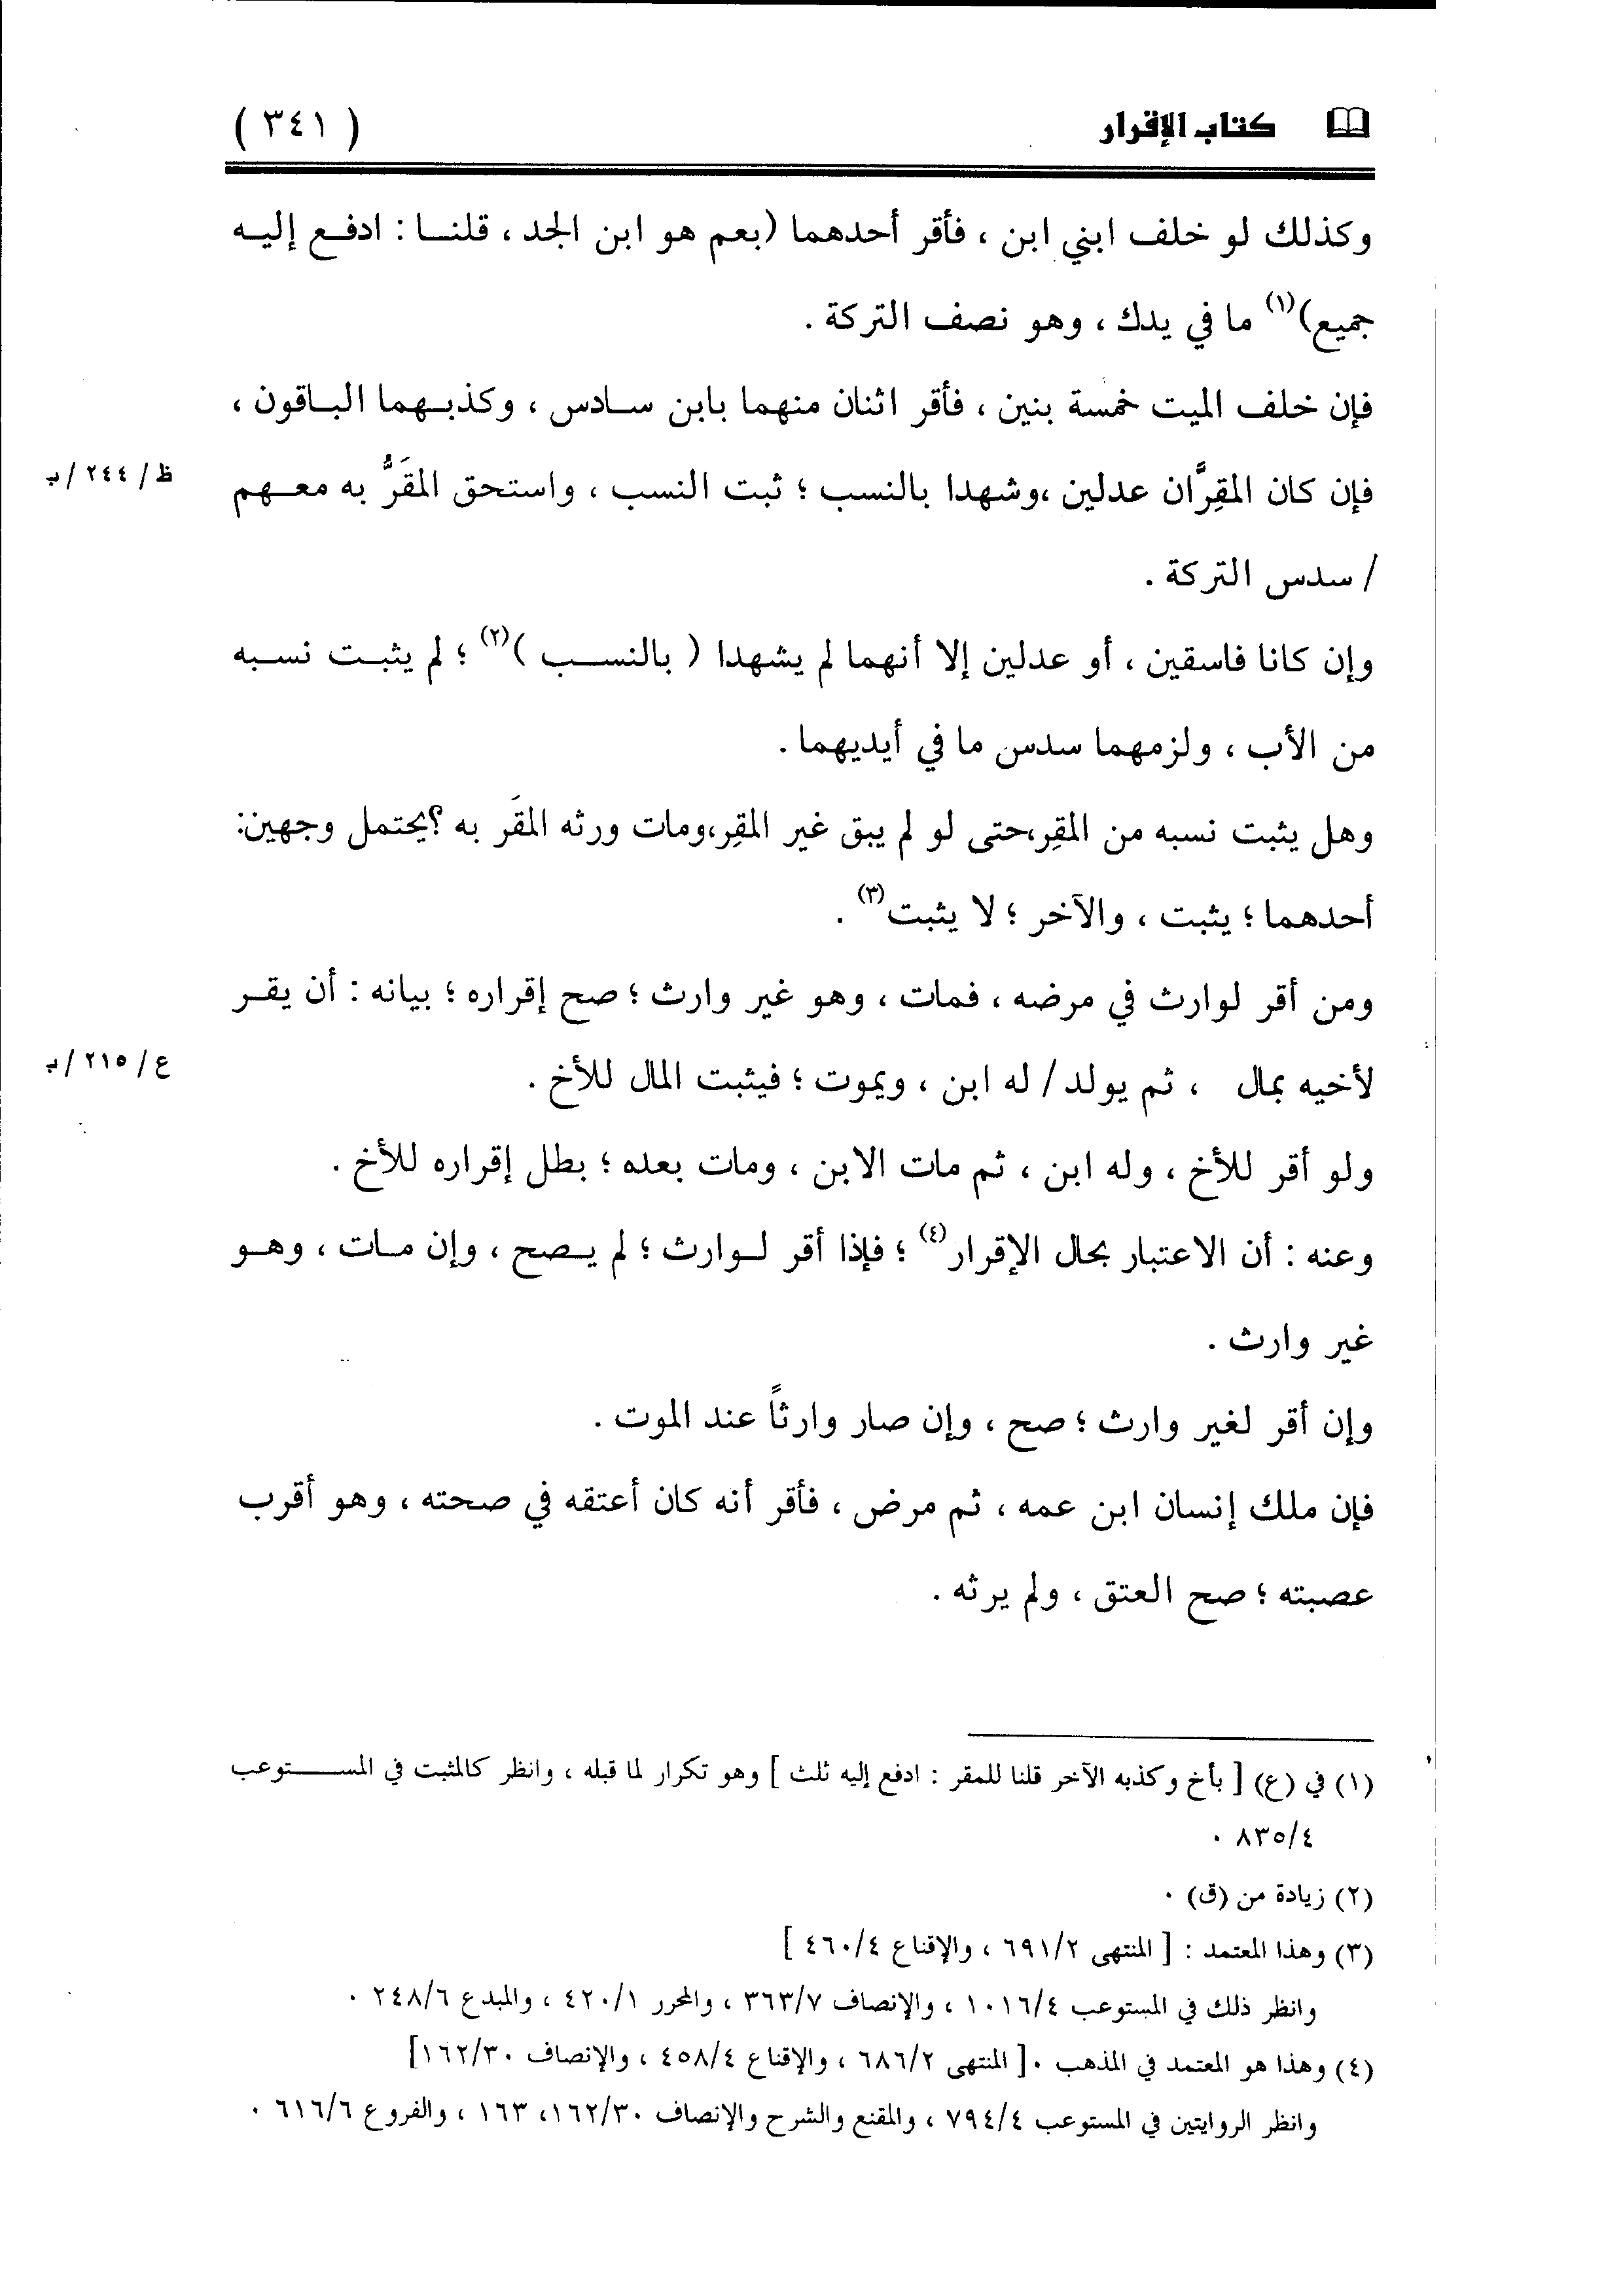 كتاب الإقرار ( ٣٤١ )
وكذلك لو خلف ابني ابن ، فأقر أحدهما (بعم هو ابن الجد ، قلنا : ادفع إليه
جميع)(١) ما في يدك ، وهو نصف التركة .
فإن خلف الميت خمسة بنين ، فأقر اثنان منهما بابن سادس ، وكذبهما الباقون ،
فإن كان المقِرَّان عدلين ،وشهدا بالنسب ؛ ثبت النسب ، واستحق المقَرُّ به معهم
ظ/ ٢٤٤ /ب
/ سدس التركة .
وإن كانا فاسقين ، أو عدلين إلا أنهما لم يشهدا ( بالنسب )(٢) ؛ لم يثبت نسبه
من الأب ، ولزمهما سدس ما في أيديهما .
وهل يثبت نسبه من المقِر،حتى لو لم يبق غير المقِر،ومات ورثه المقَر به ؟يحتمل وجهين:
أحدهما ؛ يثبت ، والآخر ؛ لا يثبت(٣) .
ومن أقر لوارث في مرضه ، فمات ، وهو غير وارث ؛ صح إقراره ؛ بيانه : أن يقر
لأخيه بمال ، ثم يولد/ له ابن ، ويموت ؛ فيثبت المال للأخ .
ع/ ٢١٥ /ب
ولو أقر للأخ ، وله ابن ، ثم مات الابن ، ومات بعده ؛ بطل إقراره للأخ .
وعنه : أن الاعتبار بحال الإقرار(٤) ؛ فإذا أقر لوارث ؛ لم يصح ، وإن مات ، وهو
غير وارث .
وإن أقر لغير وارث ؛ صح ، وإن صار وارثاً عند الموت .
فإن ملك إنسان ابن عمه ، ثم مرض ، فأقر أنه كان أعتقه في صحته ، وهو أقرب
عصبته ؛ صح العتق ، ولم يرثه .
(١) في (ع) [ بأخ وكذبه الآخر قلنا للمقر : ادفع إليه ثلث ] وهو تكرار لما قبله ، وانظر كالمثبت في المستوعب
٨٣٥/٤ .
(٢) زيادة من (ق) .
(٣) وهذا المعتمد : [ المنتهى ٦٩١/٢ ، والإقناع ٤٦٠/٤ ]
وانظر ذلك في المستوعب ١٠١٦/٤ ، والإنصاف ٣٦٣/٧ ، والمحرر ٤٢٠/١ ، والمبدع ٢٤٨/٦ .
(٤) وهذا هو المعتمد في المذهب .[ المنتهى ٦٨٦/٢ ، والإقناع ٤٥٨/٤ ، والإنصاف ١٦٢/٣٠]
وانظر الروايتين في المستوعب ٧٩٤/٤ ، والمقنع والشرح والإنصاف ١٦٢/٣٠، ١٦٣ ، والفروع ٦١٦/٦ .